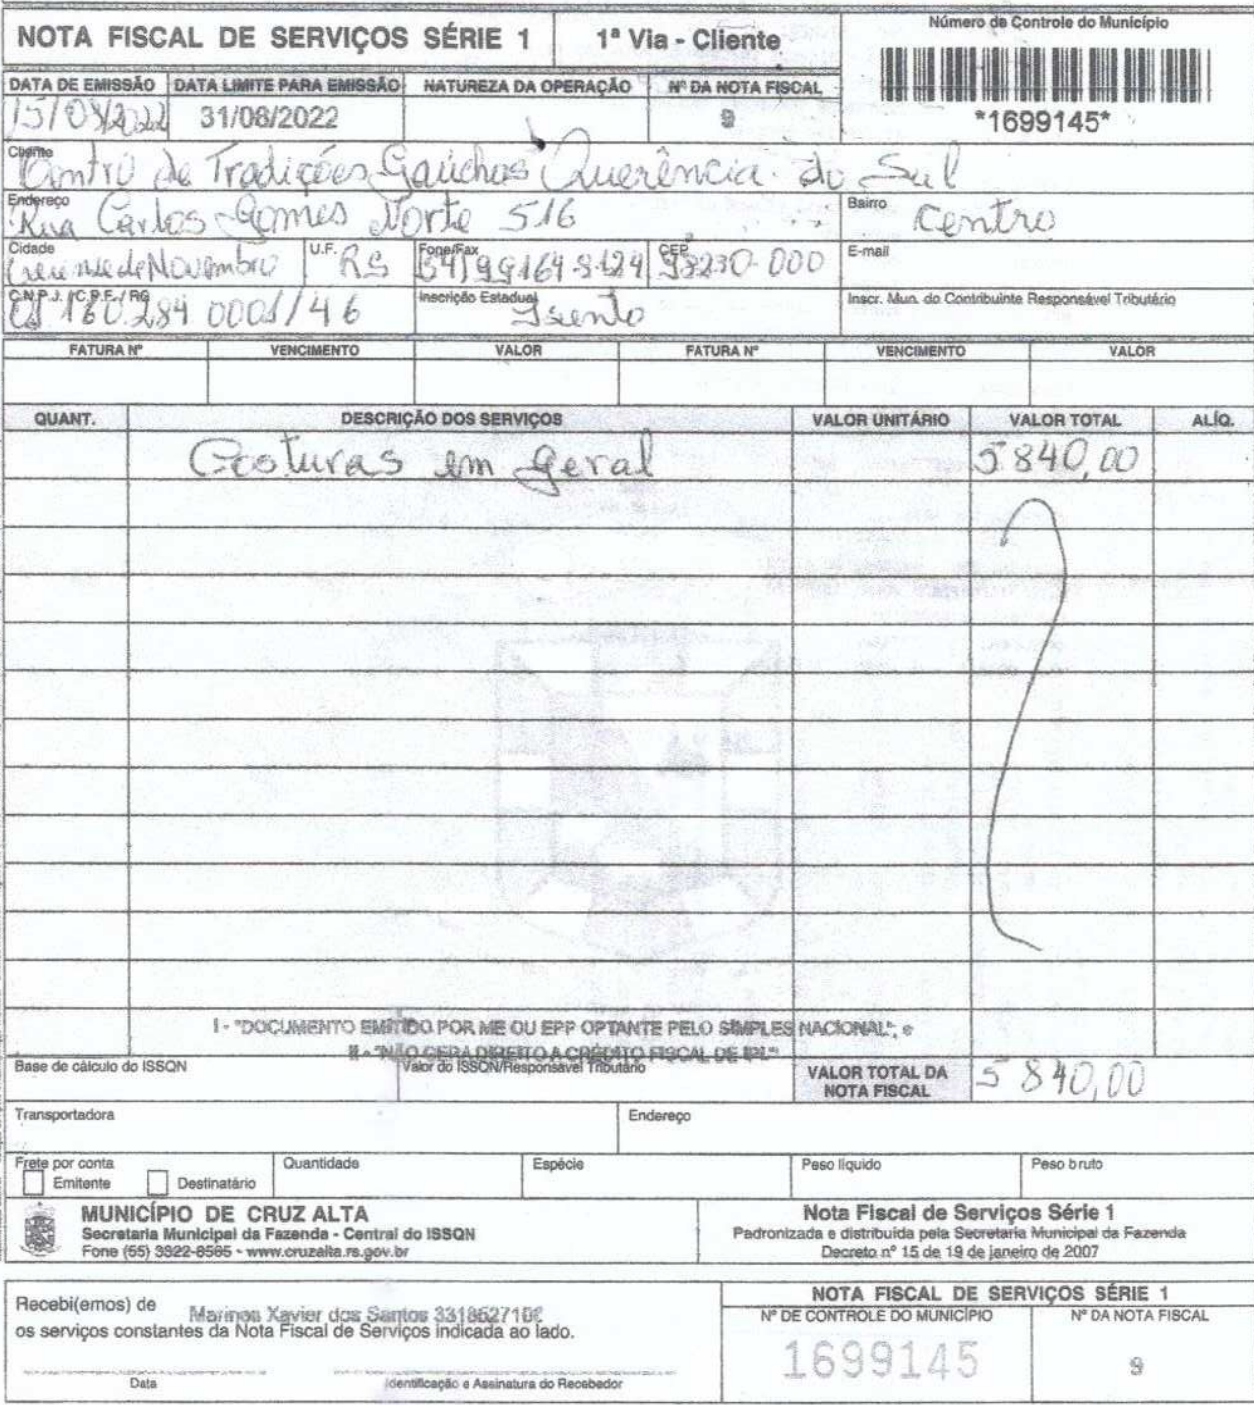 NOTA FISCAL DE SERVIÇOS SÉRIE 1 1ª Via - Cliente
Número de Controle do Município
*1699145*
DATA DE EMISSÃO DATA LIMITE PARA EMISSÃO NATUREZA DA OPERAÇÃO Nº DA NOTA FISCAL
31/08/2022 9
Cliente
Centro de Tradições Gaúchas Querência do Sul
Endereço Bairro
Rua Carlos Gomes Norte 516 Centro
Cidade U.F. Fone/Fax CEP E-mail
de Novembro RS 98230-000
C.N.P.J. / C.P.F. / RG Inscrição Estadual Inscr. Mun. do Contribuinte Responsável Tributário
160.284 0001/46 Isento
FATURA Nº VENCIMENTO VALOR FATURA Nº VENCIMENTO VALOR
QUANT. DESCRIÇÃO DOS SERVIÇOS VALOR UNITÁRIO VALOR TOTAL ALÍQ.
Costuras em geral 5840,00
I - "DOCUMENTO EMITIDO POR ME OU EPP OPTANTE PELO SIMPLES NACIONAL"; e
II - "NÃO GERA DIREITO A CRÉDITO FISCAL DE IPI."
Base de cálculo do ISSQN Valor do ISSQN/Responsável Tributário VALOR TOTAL DA
NOTA FISCAL 5840,00
Transportadora Endereço
Frete por conta Quantidade Espécie Peso líquido Peso bruto
Emitente Destinatário
MUNICÍPIO DE CRUZ ALTA
Secretaria Municipal da Fazenda - Central do ISSQN
Fone (55) 3322-8565 - www.cruzalta.rs.gov.br
Nota Fiscal de Serviços Série 1
Padronizada e distribuída pela Secretaria Municipal da Fazenda
Decreto nº 15 de 19 de janeiro de 2007
Recebi(emos) de Xavier dos Santos
os serviços constantes da Nota Fiscal de Serviços indicada ao lado.
Data Identificação e Assinatura do Recebedor
NOTA FISCAL DE SERVIÇOS SÉRIE 1
Nº DE CONTROLE DO MUNICÍPIO Nº DA NOTA FISCAL
1699145 9